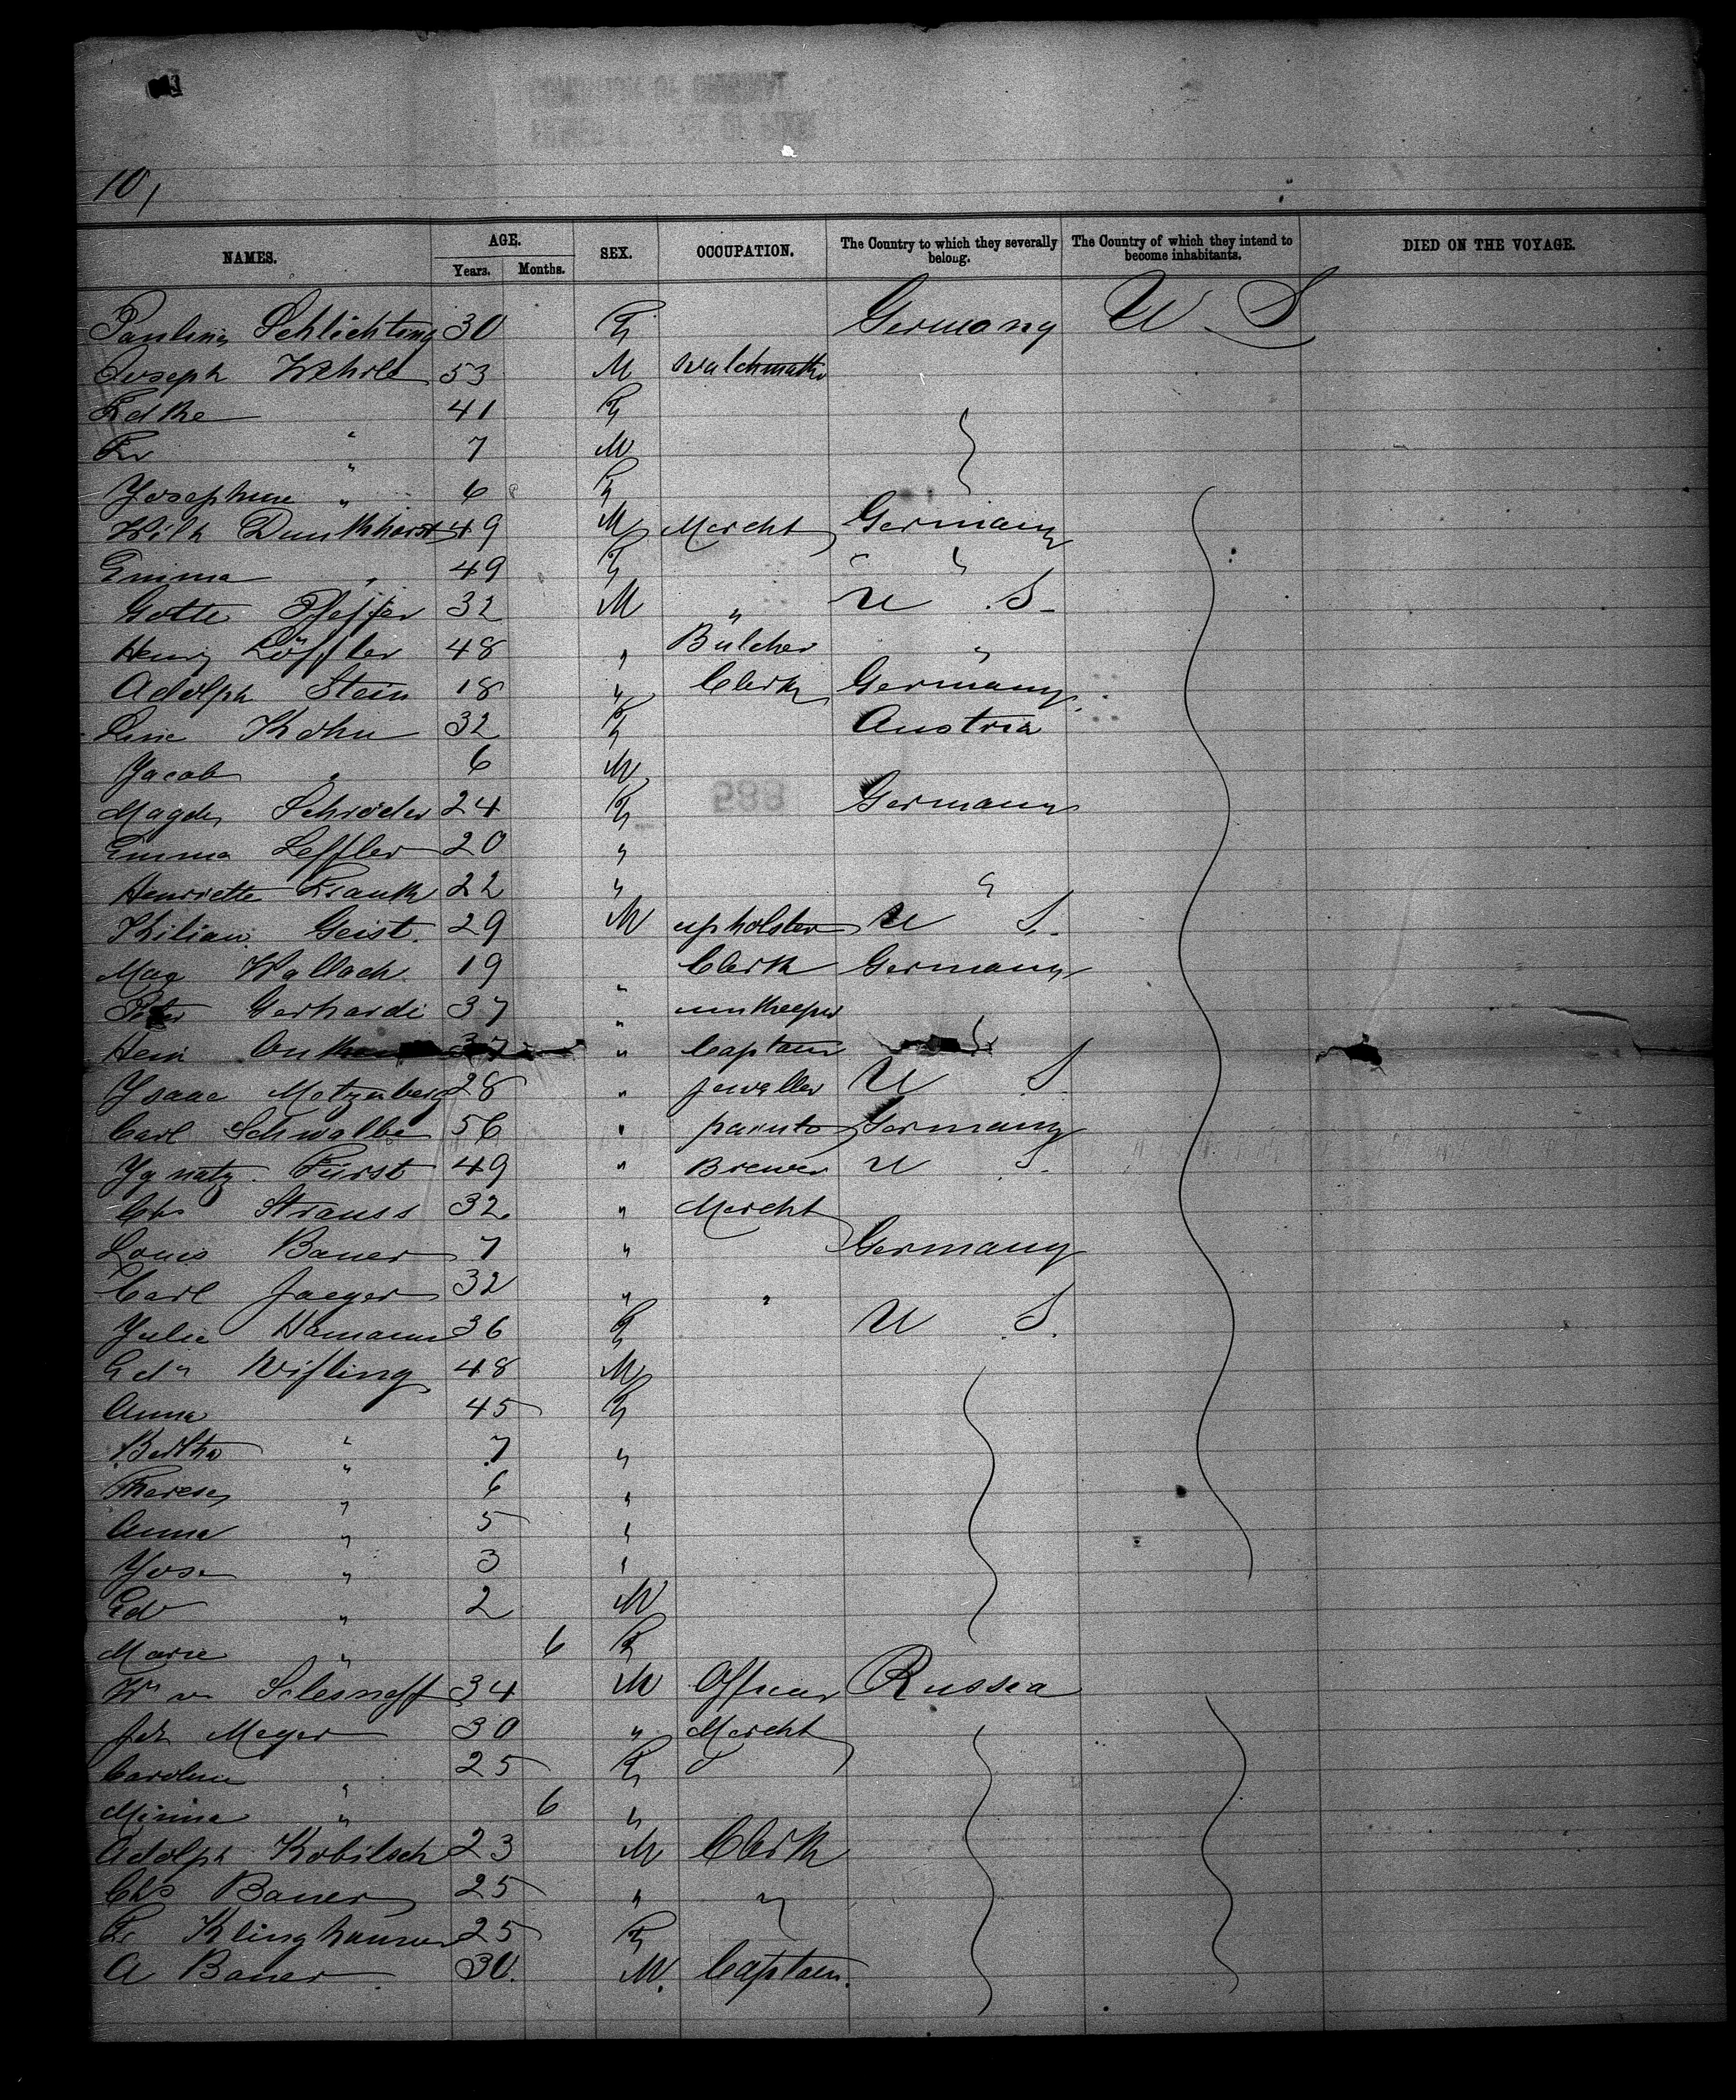 10,
NAMES. AGE. SEX. OCCUPATION. The Country to which they severally belong. The Country of which they intend to become inhabitants. DIED ON THE VOYAGE.
Years. Months.
Schlichting 30 F Germany U S
Joseph Wehrle 53 M
41 F
Fr " 7 M
Josephine " 6 F
Wilh 49 M Mercht Germany
Emma " 49 F " "
Pfeffer 32 M " U S.
Henry Löffler 48 " Butcher "
Adolph Stein 18 " Clerk Germany
Line Kohn 32 F Austria
Jacob " 6 M
Magda Schröder 24 F Germany
588
Emma Leffler 20 "
Henriette Frank 22 " "
Kilian Geist. 29 M upholster U S.
Max Wallach 19 Clerk Germany
Peter Gerhardi 37 "
" Captain
Isaac 28 " jeweller U S
Carl Schwalbe 56 " Germany
Ygnatz Fürst 49 " Brewer U S.
Chs Strauss 32 " Mercht
Louis Bauer 7 " Germany
Carl Jaeger 32 " "
Julie Hamann 36 F U S.
48 M
Anna " 45 F
Bertha " 7 "
Therese " 6 "
Anna " 5 "
3 "
Ed " 2 M
Marie " 6 F
34 M Officer Russia
Joh Meyer 30 " Mercht
Caroline " 25 F
Minna " 6 "
Adolph Kobitsch 23 M Clerk
Chs Bauer 25 " "
Fr Klinghauser 25 F
A Bauer 30. M. Captain.